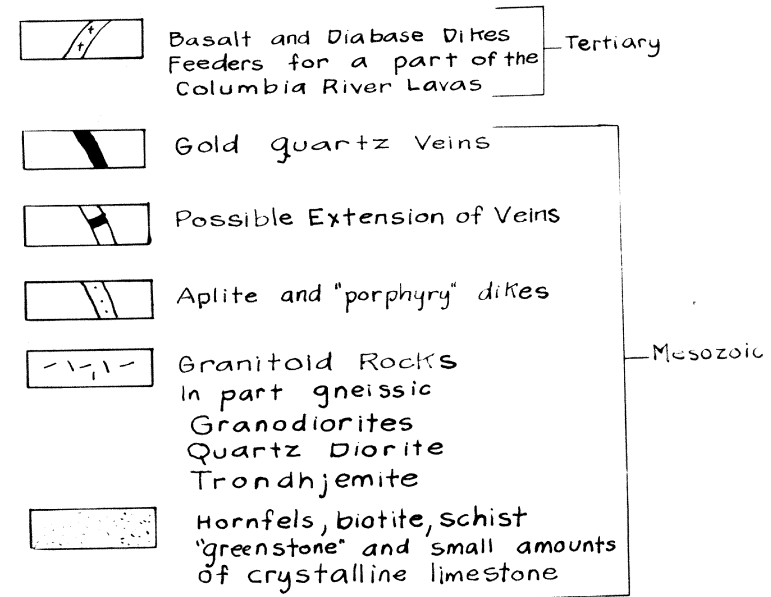 Basalt and Diabase Dikes
Feeders for a part of the
Columbia River Lavas
Tertiary
Gold quartz Veins
Possible Extension of Veins
Aplite and "porphyry" dikes
Granitoid Rocks
In part gneissic
Granodiorites
Quartz Diorite
Trondhjemite
Mesozoic
Hornfels, biotite, schist
"greenstone" and small amounts
of crystalline limestone